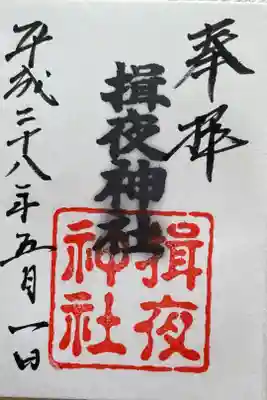 奉拝
揖夜神社
揖夜
神社
平成二十八年五月一日